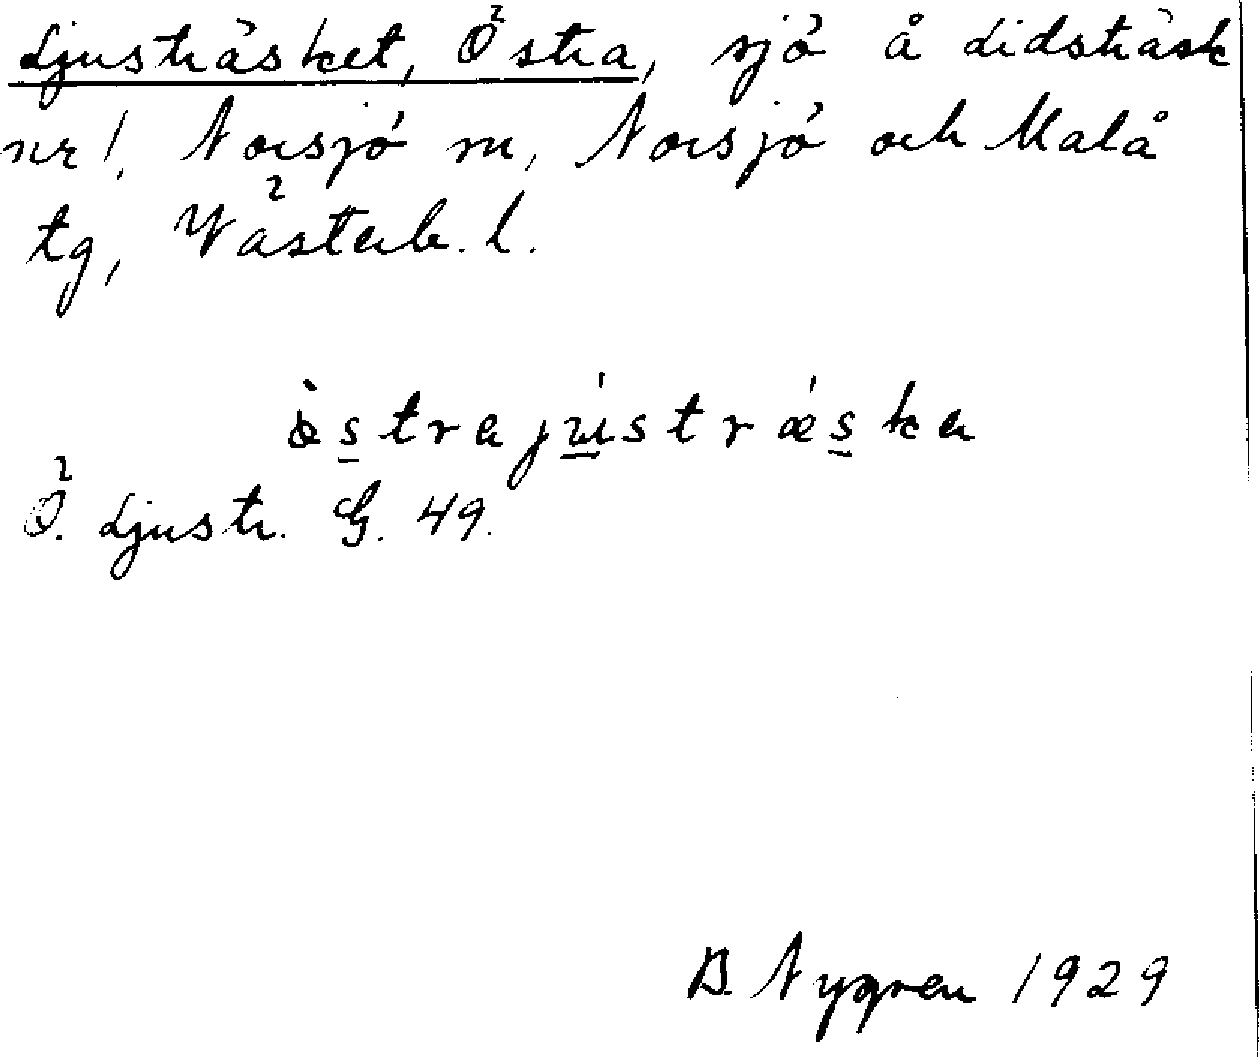 Ljusträsket, Östra, sjö å Lidsträsk
nr 1, Norsjö sn, Norsjö och Malå
tg, Västerb. l.
ö̀s̲trajú̲strǽs̲ka
Ö. Ljustr. G. 49.
D. Nygren 1929